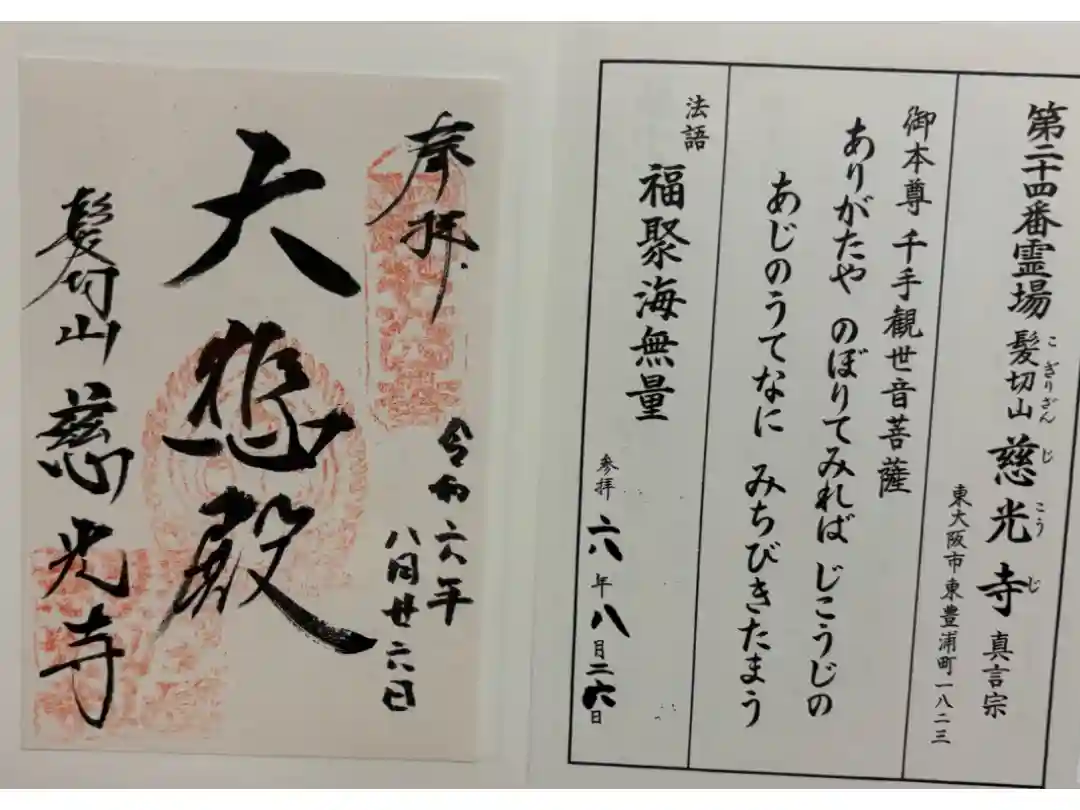 第二十四番霊場 髪切山 慈光寺 真言宗
こ ぎりざん じ こう じ
東大阪市東豊浦町一八二三
御本尊 千手観世音菩薩
ありがたや のぼりてみれば じこうじの
あじのうてなに みちびきたまう
法語
福聚海無量
参拝 六年八月二六日
奉拝
令和六年
八月廿六日
大悲殿
髪切山 慈光寺